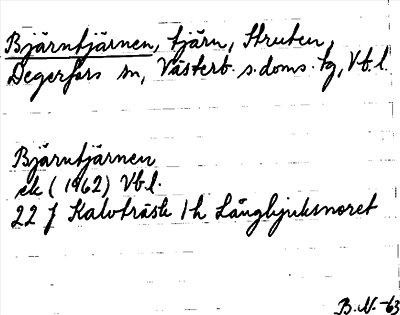 Bjärntjärnen, tjärn, Struten,
Degerfors sn, Västerb. s. doms. tg, Vb. l.
Bjärntjärnen
ek (1962) Vb l.
22 J Kalvträsk 1h Långbjuksnoret
B. N. -63